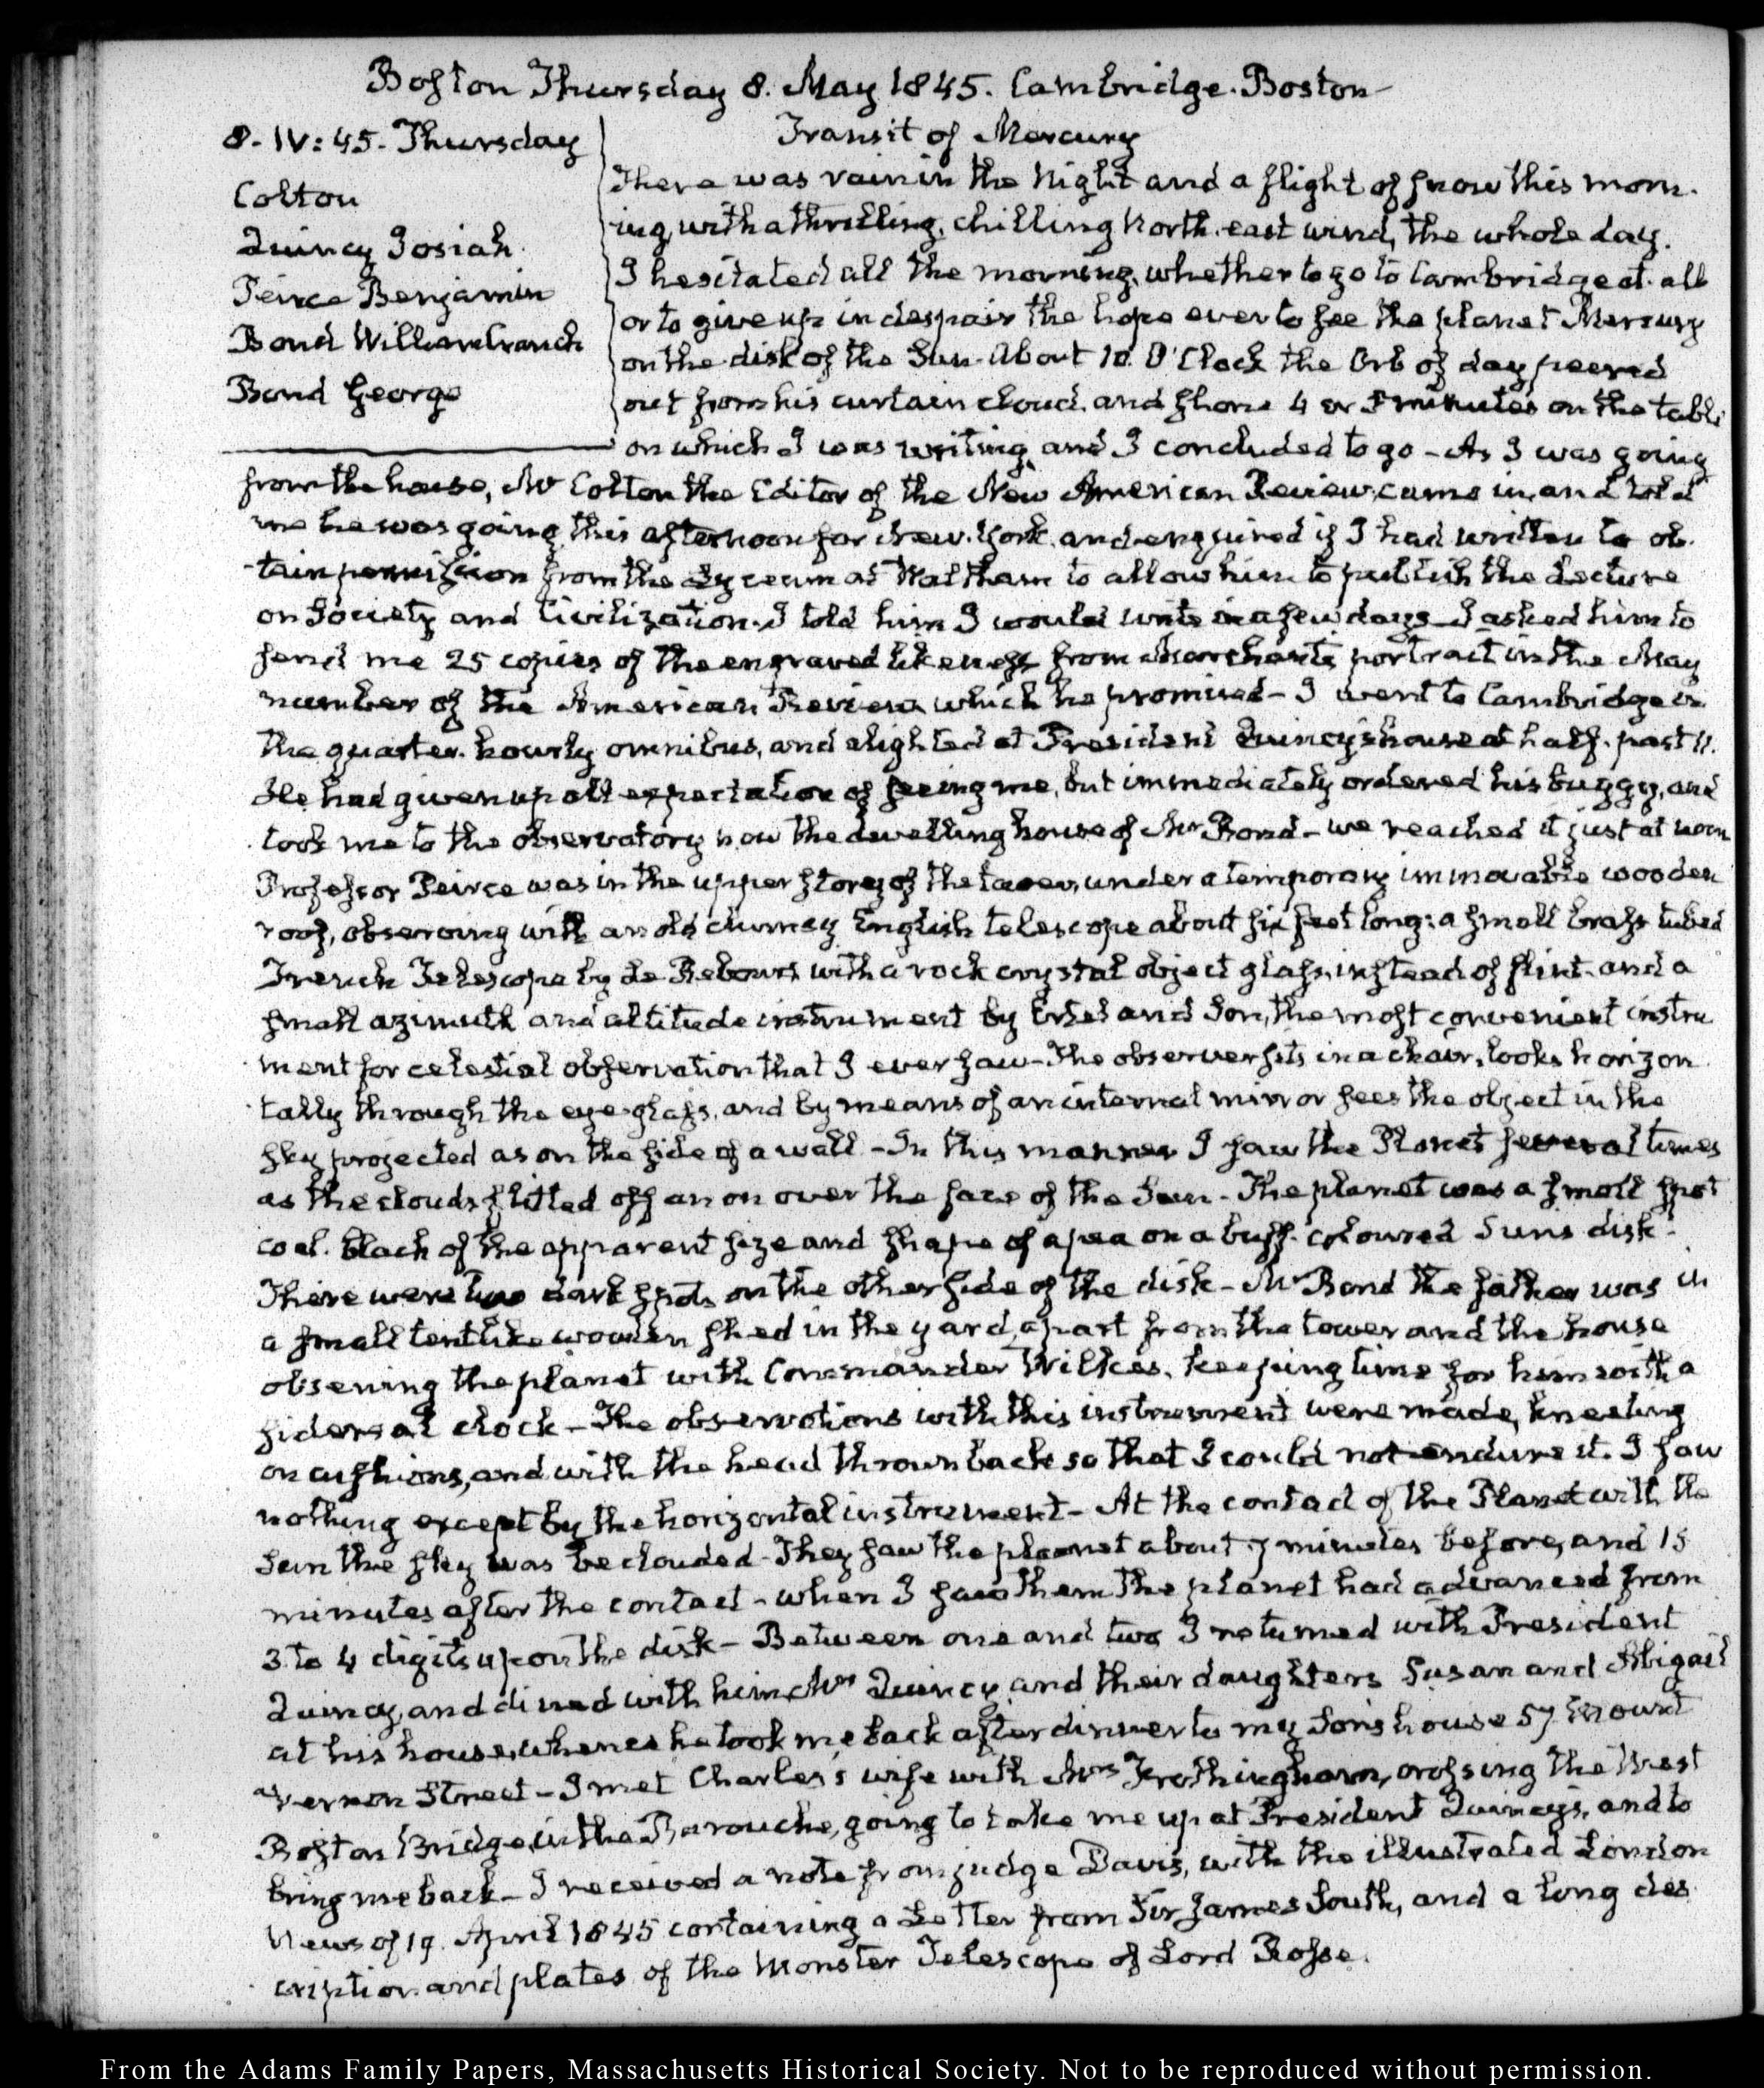 Boston Thursday 8. May 1845. Cambridge. Boston
8. IV: 45. Thursday
Colton
Quincy Josiah
Peirce Benjamin
Bond William Cranch
Bond George
Transit of Mercury
There was rain in the Night and a flight of snow this morn-
ing, with a thrilling, chilling North-east wind, the whole day.
I hesitated all the morning, whether to go to Cambridge at all
or to give up in despair the hope ever to see the planet Mercury
on the disk of the Sun. About 10. O'Clock the Orb of day peered
out from his curtain cloud, and shone 4 or 5 minutes on the table
on which I was writing, and I concluded to go – As I was going
from the house, Mr Colton the Editor of the New American Review, came in, and told
me he was going this afternoon for New-York, and enquired if I had written to ob-
tain permission from the Lyceum at Waltham to allow him to publish the Lecture
on Society and Civilization. I told him I would write in a few days – I asked him to
send me 25 copies of the engraved likeness from Marchant's portrait in the May
number of the American Review, which he promised – I went to Cambridge in
the quarter-hourly omnibus, and alighted at President Quincy's house at half-past 11.
He had given up all expectation of seeing me, but immediately ordered his buggy, and
took me to the observatory now the dwelling house of Mr Bond – we reached it just at noon
Professor Peirce was in the upper story of the tower, under a temporary immovable wooden
roof, observing with an old clumsy English telescope about six feet long: a small brass tubed
French Telescope by Le Rebours with a rock crystal object glass, instead of flint, and a
small azimuth and altitude instrument by and Son, the most convenient instru
ment for celestial observation that I ever saw – The observer sits in a chair, looks horizon
tally through the eye-glass, and by means of an internal mirror sees the object in the
sky projected as on the side of a wall – In this manner I saw the Planet several times
as the clouds flitted off an on over the face of the Sun – The planet was a small spot
coal-black of the apparent size and shape of a pea on a buff-coloured Suns disk –
There were two dark spots on the other side of the disk – Mr Bond the father was in
a small tentlike wooden shed in the yard, apart from the tower and the house
observing the planet with Commander Wilkes, keeping time for him with a
sidereal clock – The observations with this instrument were made, kneeling
on cushions, and with the head thrown back so that I could not endure it. I saw
nothing except by the horizontal instrument – At the contact of the Planet with the
Sun the sky was beclouded – They saw the planet about 7 minutes before, and 15
minutes after the contact – when I saw them the planet had advanced from
3 to 4 digits upon the disk – Between one and two I returned with President
Quincy, and dined with him, Mrs Quincy, and their daughters Susan and Abigail
at his house, whence he took me back after dinner to my Son's house 57 Mount
Vernon Street – I met Charles's wife with Mrs Frothingham, crossing the West
Boston Bridge, in the Barouche, going to take me up at President Quincy's, and to
bring me back – I received a note from judge Davis, with the illustrated London
News of 19. April 1845 containing a Letter from Sir James South, and a long des
cription and plates of the Monster Telescope of Lord Rosse.
From the Adams Family Papers, Massachusetts Historical Society. Not to be reproduced without permission.